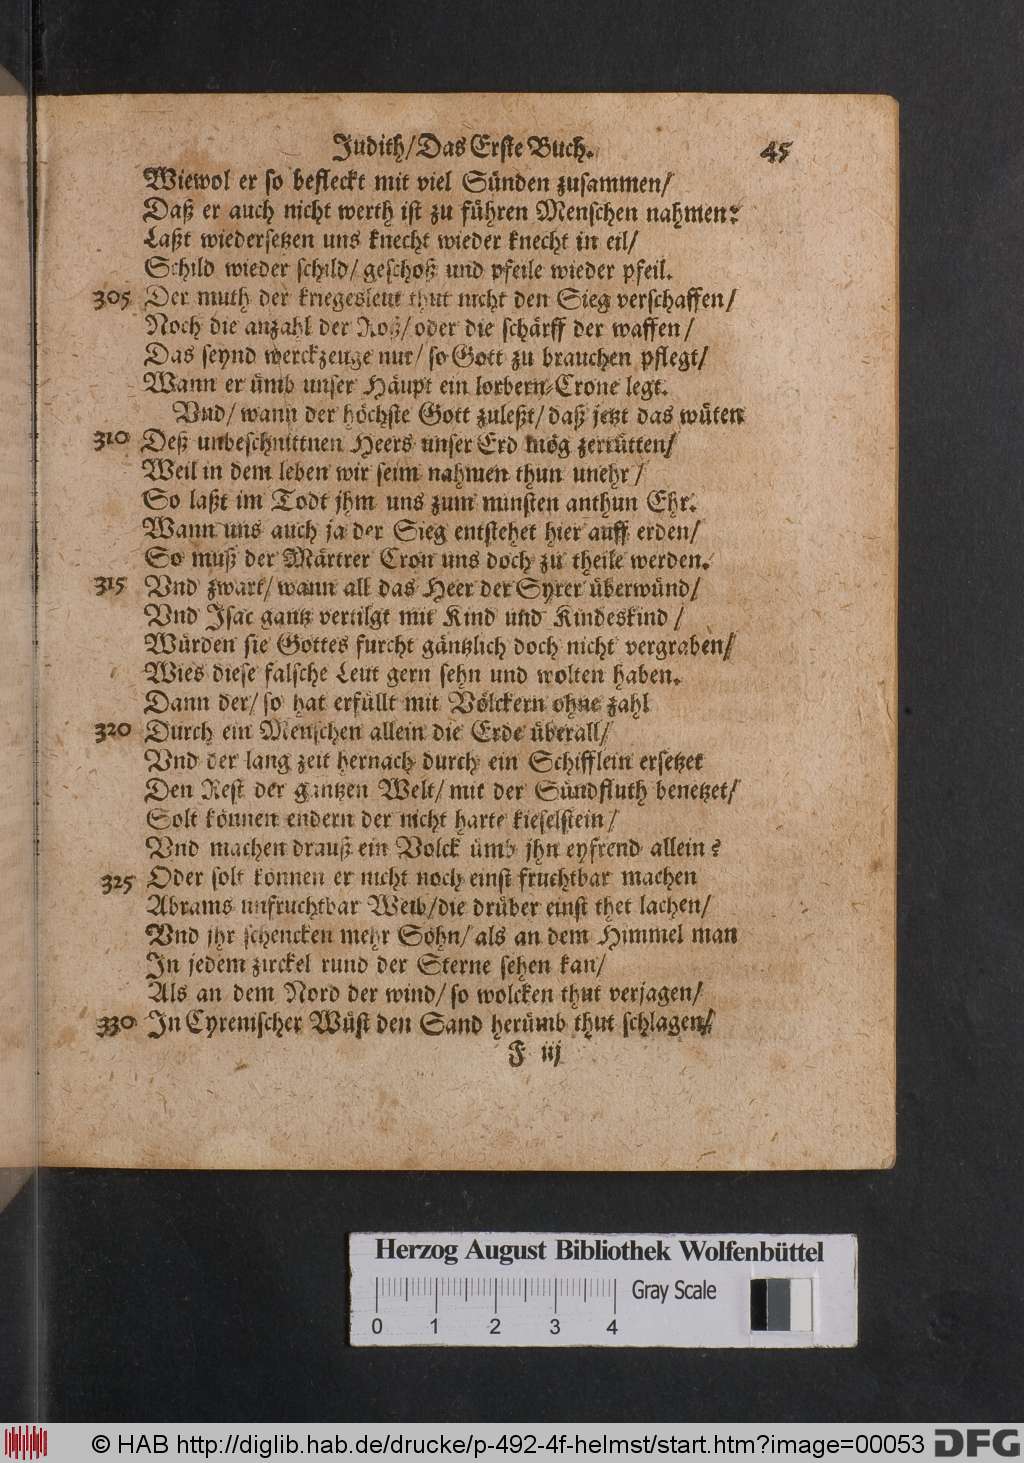 Judith/Das Erste Buch. 45
Wiewol er so befleckt mit viel Sünden zusammen/
Daß er auch nicht werth ist zu führen Menschen nahmen?
Laßt wiedersetzen uns knecht wieder knecht in eil/
Schild wieder schild/ geschoß und pfeile wieder pfeil.
305 Der muth der kriegesleut thut nicht den Sieg verschaffen/
Noch die anzahl der Roß/ oder die schärff der waffen/
Das seynd werckzeuge nur/ so Gott zu brauchen pflegt/
Wann er ümb unser Häupt ein lorbern-Crone legt.
Vnd/ wann der höchste Gott zuleßt/ daß jetzt das wüten
310 Deß unbeschnittnen Heers unser Erd mög zerrütten/
Weil in dem leben wir seim nahmen thun unehr/
So laßt im Todt jhm uns zum minsten anthun Ehr.
Wann uns auch ja der Sieg entstehet hier auff erden/
So muß der Märtrer Cron uns doch zu theile werden.
315 Vnd zwart/ wann all das Heer der Syrer überwünd/
Vnd Isac gantz vertilgt mit Kind und Kindeskind/
Würden sie Gottes furcht gäntzlich doch nicht vergraben/
Wies diese falsche Leut gern sehn und wolten haben.
Dann der/ so hat erfüllt mit Völckern ohne zahl
320 Durch ein Menschen allein die Erde überall/
Vnd der lang zeit hernach durch ein Schifflein ersetzet
Den Rest der gantzen Welt/ mit der Sündfluth benetzet/
Solt können endern der nicht harte kieselstein/
Vnd machen drauß ein Volck ümb jhn eyfrend allein?
325 Oder solt können er nicht noch einst fruchtbar machen
Abrams unfruchtbar Weib/die drüber einst thet lachen/
Vnd jhr schencken mehr Söhn/ als an dem Himmel man
In jedem zirckel rund der Sterne sehen kan/
Als an dem Nord der wind/ so wolcken thut verjagen/
330 In Cyrenischer Wüst den Sand herümb thut schlagen/
F iij
Herzog August Bibliothek Wolfenbüttel
Gray Scale
0 1 2 3 4
© HAB http://diglib.hab.de/drucke/p-492-4f-helmst/start.htm?image=00053 DFG